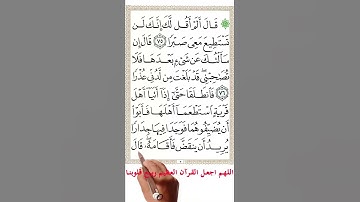 قَالَ أَلَمْ أَقُل لَّكَ إِنَّكَ لَن
تَسْتَطِيعَ مَعِيَ صَبْرًا ٧٥ قَالَ إِن
سَأَلْتُكَ عَن شَيْءٍ بَعْدَهَا فَلَا
تُصَاحِبْنِي قَدْ بَلَغْتَ مِن لَّدُنِّي عُذْرًا
٧٦ فَانطَلَقَا حَتَّىٰ إِذَا أَتَيَا أَهْلَ
قَرْيَةٍ اسْتَطْعَمَا أَهْلَهَا فَأَبَوْا
أَن يُضَيِّفُوهُمَا فَوَجَدَا فِيهَا جِدَارًا
يُرِيدُ أَن يَنقَضَّ فَأَقَامَهُ قَالَ
اللهم اجعل القرآن العظيم ربيع قلوبنا